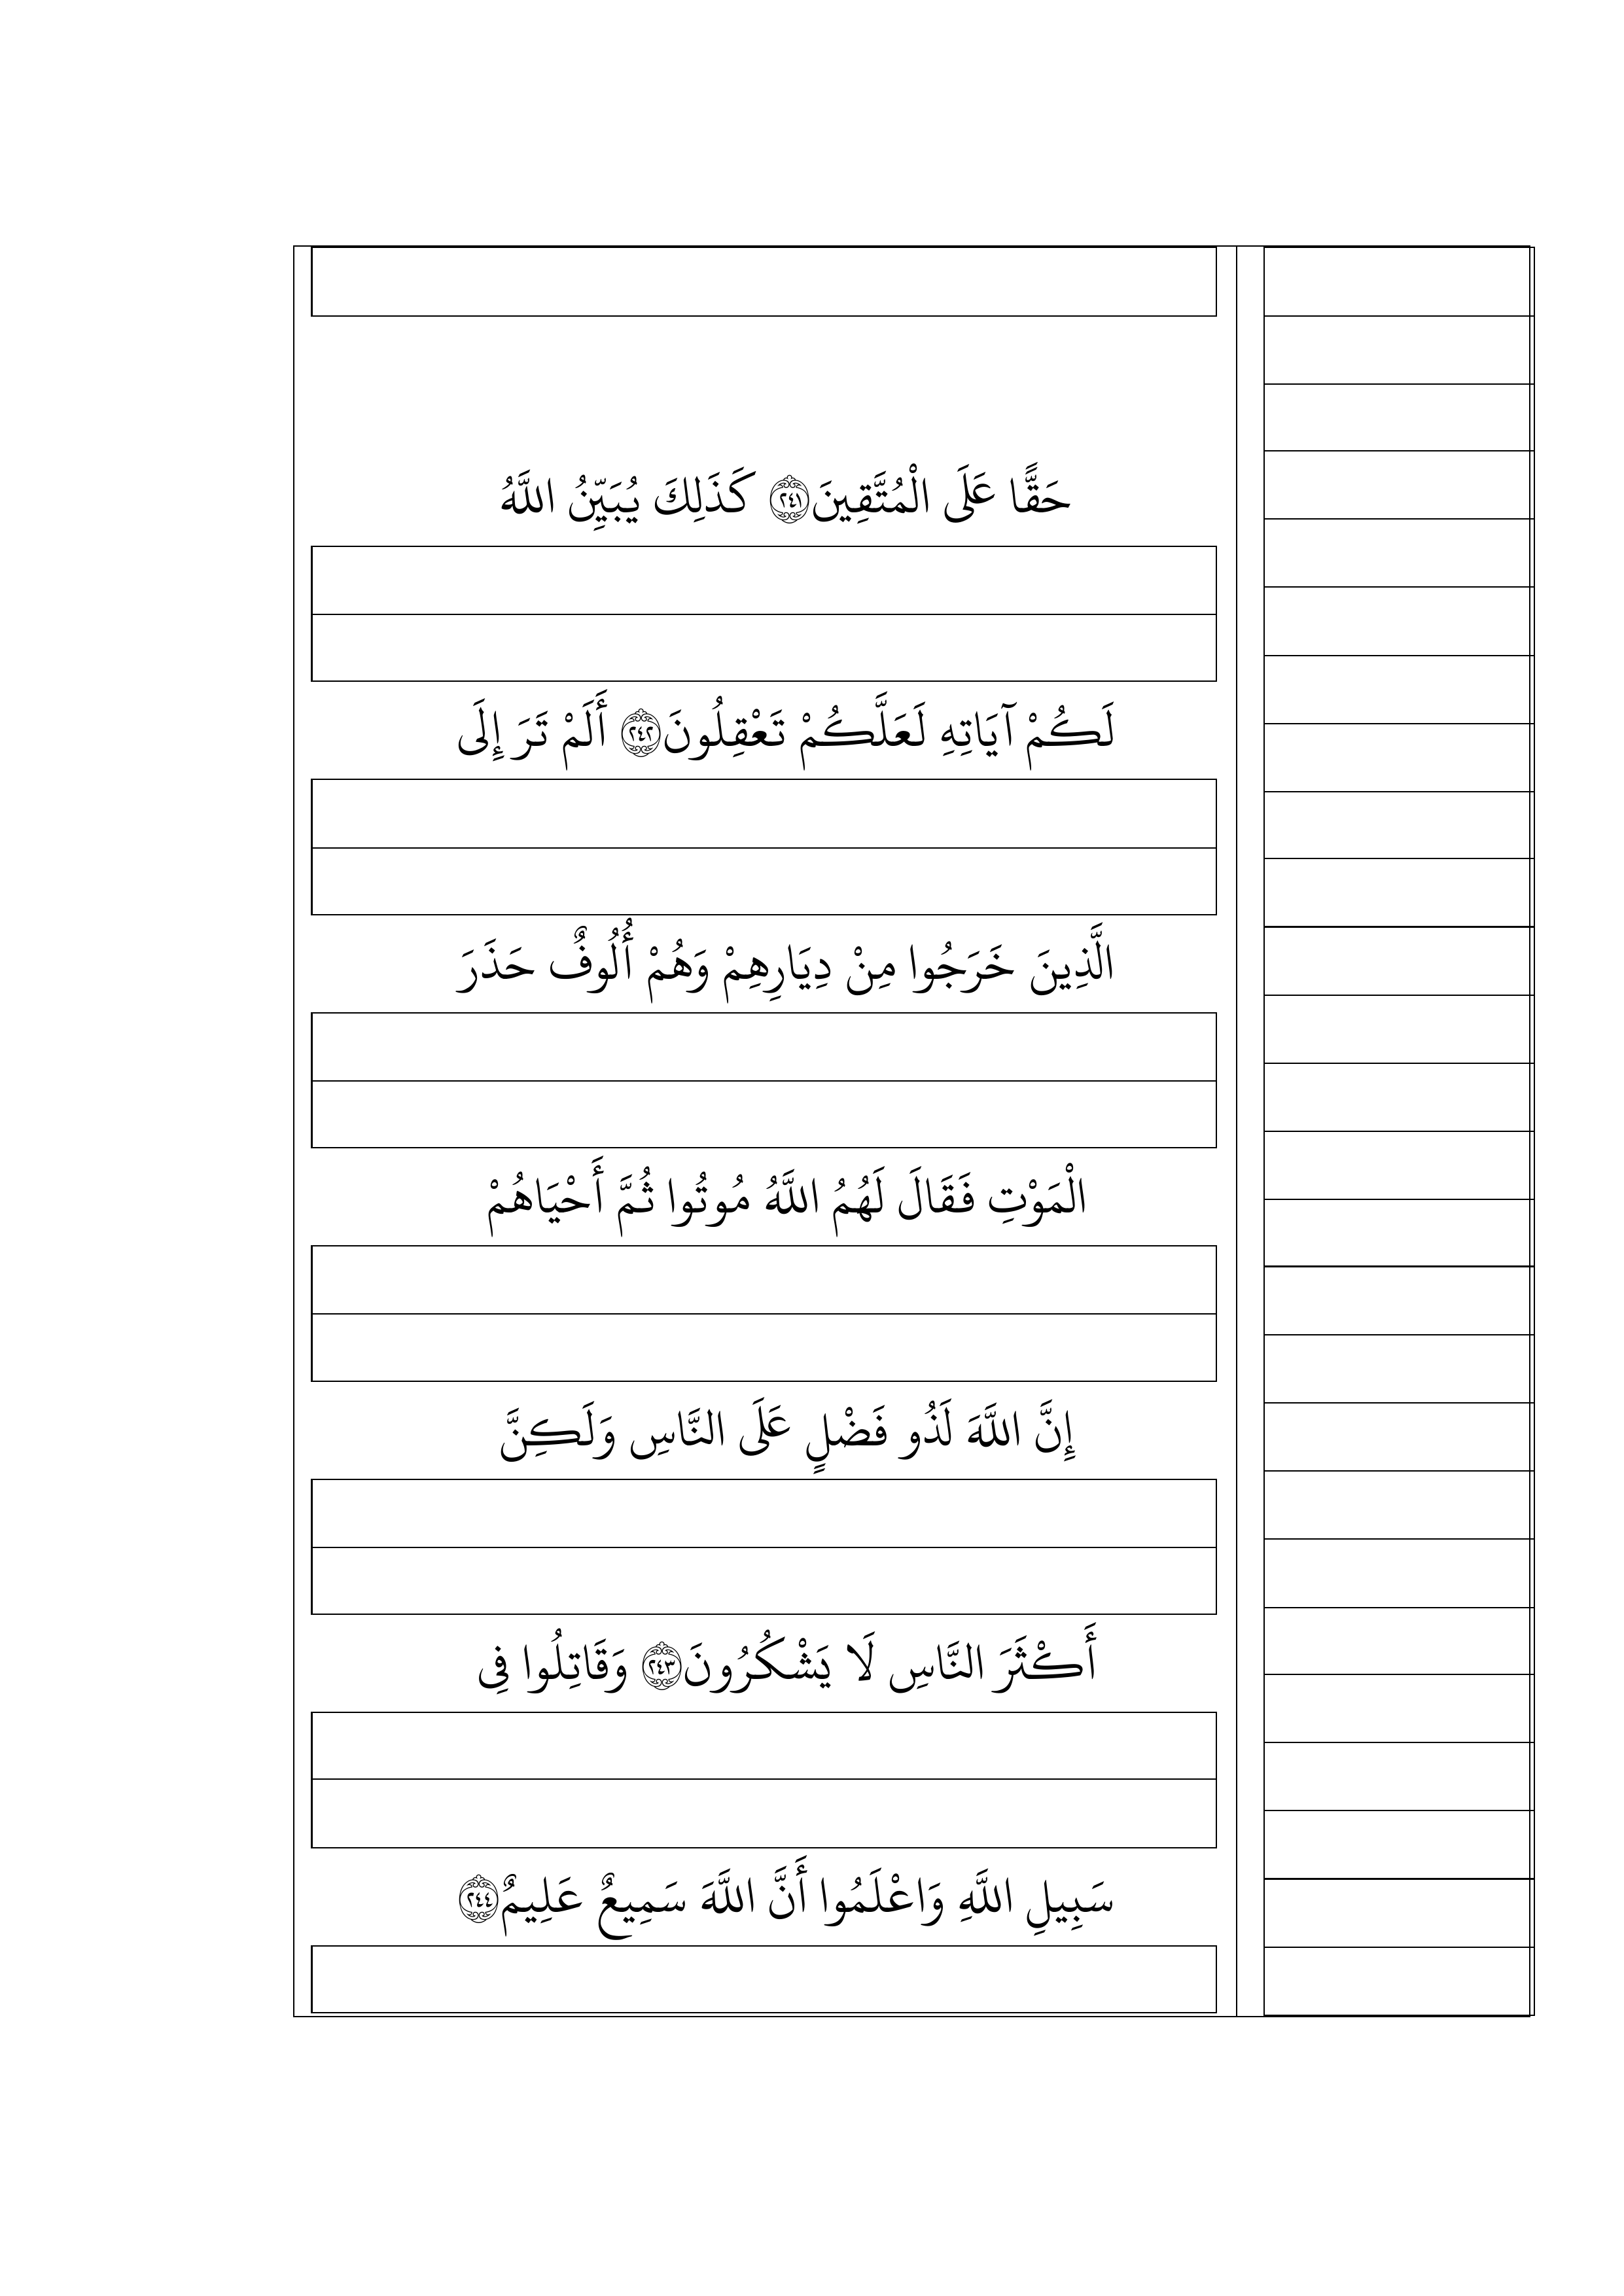 حَقًّا عَلَى الْمُتَّقِينَ ﴿٢٤١﴾ كَذَلِكَ يُبَيِّنُ اللَّهُ
لَكُمْ آيَاتِهِ لَعَلَّكُمْ تَعْقِلُونَ ﴿٢٤٢﴾ أَلَمْ تَرَ إِلَى
الَّذِينَ خَرَجُوا مِنْ دِيَارِهِمْ وَهُمْ أُلُوفٌ حَذَرَ
الْمَوْتِ فَقَالَ لَهُمُ اللَّهُ مُوتُوا ثُمَّ أَحْيَاهُمْ
إِنَّ اللَّهَ لَذُو فَضْلٍ عَلَى النَّاسِ وَلَكِنَّ
أَكْثَرَ النَّاسِ لَا يَشْكُرُونَ ﴿٢٤٣﴾ وَقَاتِلُوا فِي
سَبِيلِ اللَّهِ وَاعْلَمُوا أَنَّ اللَّهَ سَمِيعٌ عَلِيمٌ ﴿٢٤٤﴾